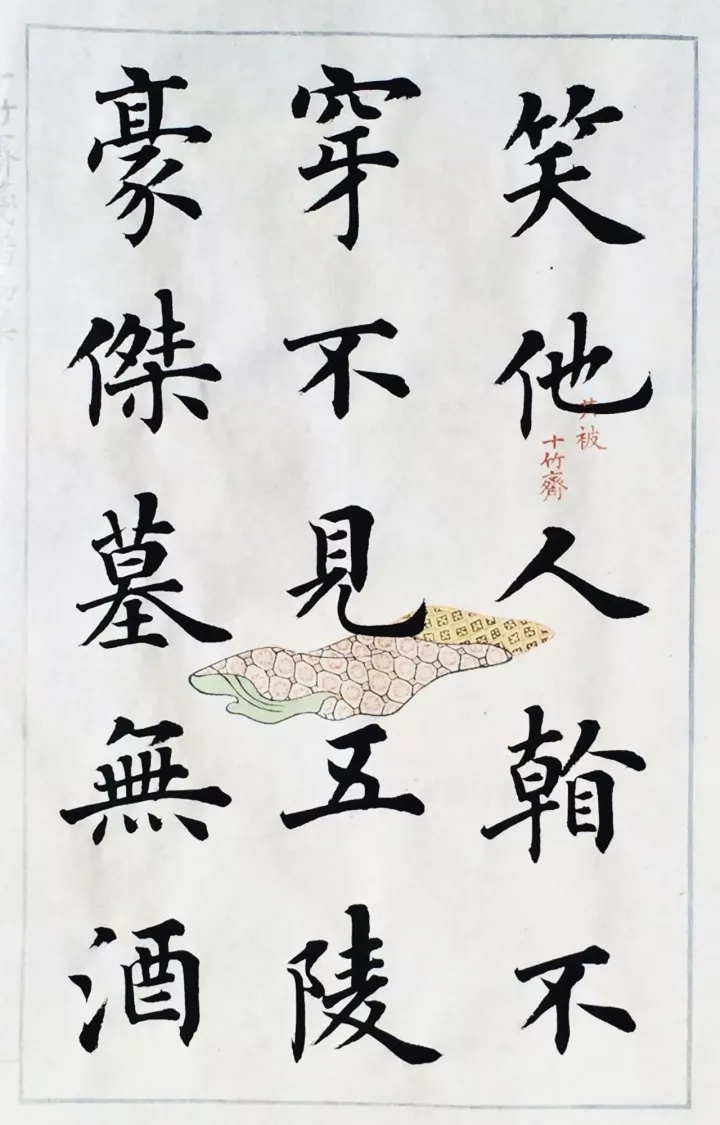 笑他人不
穿不見五陵
豪傑墓無酒
共被
十竹齋
十竹齋箋譜初